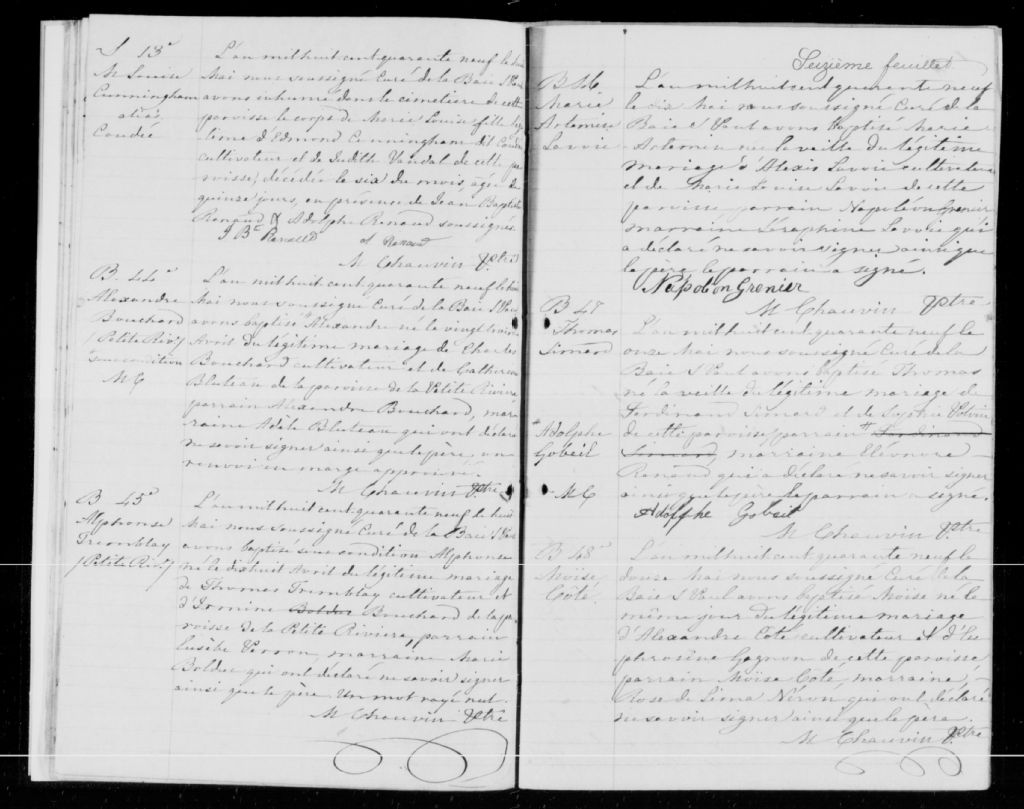 S 13e
M Louise
Cunningham
alias
Condée
L'an mil huit cent quarante neuf le huit
Mai nous soussigné Curé de la Baie St Paul
avons inhumé dans le cimetière de cette
paroisse le corps de Marie Louise fille légi
time d'Edmond Cunningham dit Condée
cultivateur et de Judith Vandal de cette pa
roisse, décédée le six du mois, agée de
quinze jours, en présence de Jean Baptiste
Renaud & Adolphe Renaud soussignés.
J Bte Renauld A Renaud
M Chauvin Ptre
B 44e
Alexandre
Bouchard
(Petite Rivre)
Sous condition
M C
L'an mil huit cent quarante neuf le huit
Mai nous soussigné Curé de la Baie St Paul
avons baptisé Alexandre né le vingt trois
Avril du légitime mariage de Charles
Bouchard cultivateur et de Catherine
Bluteau de la paroisse de la Petite Rivière
parrain Alexandre Bouchard, mar
raine Adèle Bluteau qui ont déclaré
ne savoir signer ainsi que le père, un
renvoi en marge approuvé.
M Chauvin Ptre
B 45e
Alphonse
Tremblay
(Petite Rivre)
L'an mil huit cent quarante neuf le huit
Mai nous soussigné Curé de la Baie St Paul
avons baptisé sous condition Alphonse
né le dixhuit Avril du légitime mariage
de Thomas Tremblay cultivateur et
Bolduc Bouchard de la pa
roisse de la Petite Rivière, parrain
marraine Marie
Bolduc qui ont déclaré ne savoir signer
ainsi que le père. Un mot rayé nul.
M Chauvin Ptre
Seizième feuillet
B 46
Marie
Artemise
Lavoie
L'an mil huit cent quarante neuf
le six Mai nous soussigné Curé de la
Baie St Paul avons baptisé Marie
Artemise née la veille du légitime
mariage d'Alexis Lavoie cultivateur
et de Marie Louise Lavoie de cette
paroisse parrain Napoléon Grenier
marraine Séraphine Lavoie qui
a déclaré ne savoir signer ainsi que
le père, le parrain a signé.
Napoleon Grenier
M Chauvin Ptre
B 47
Thomas
Simard
# Adolphe
Gobeil
M C
L'an mil huit cent quarante neuf le
onze Mai nous soussigné Curé de la
Baie St Paul avons baptisé Thomas
né la veille du légitime mariage de
Ferdinand Simard et de Sophie
de cette paroisse, parrain # Ferdinand
Simard, marraine Eléonore
Renaud qui a déclaré ne savoir signer
ainsi que le père le parrain a signé.
Adolphe Gobeil
M Chauvin Ptre
B 48e
Moïse
Côté
L'an mil huit cent quarante neuf le
douze Mai nous soussigné Curé de la
Baie St Paul avons baptisé Moïse né le
même jour du légitime mariage
d'Alexandre Côté cultivateur & d'Eu
phrosine Gagnon de cette paroisse
parrain Moïse Côté, marraine,
Rose de Lima Néron qui ont déclaré
ne savoir signer ainsi que le père.
M Chauvin Ptre